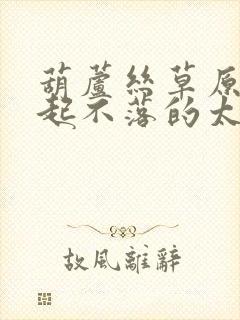 葫蘆絲草原
起不落的太
故風離辭